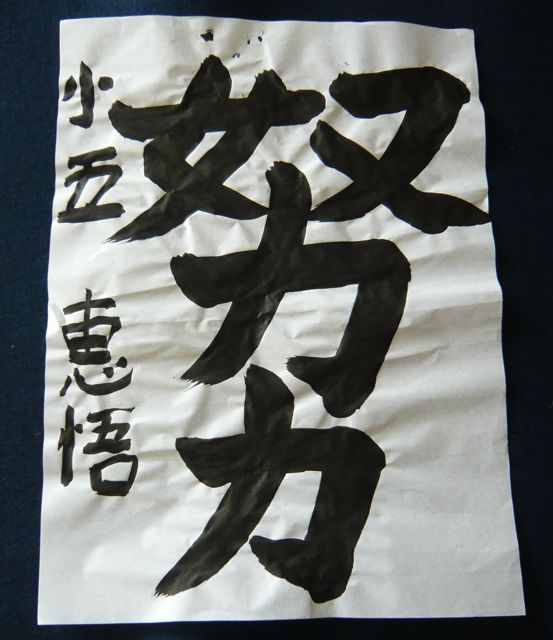 努力
小五 恵悟